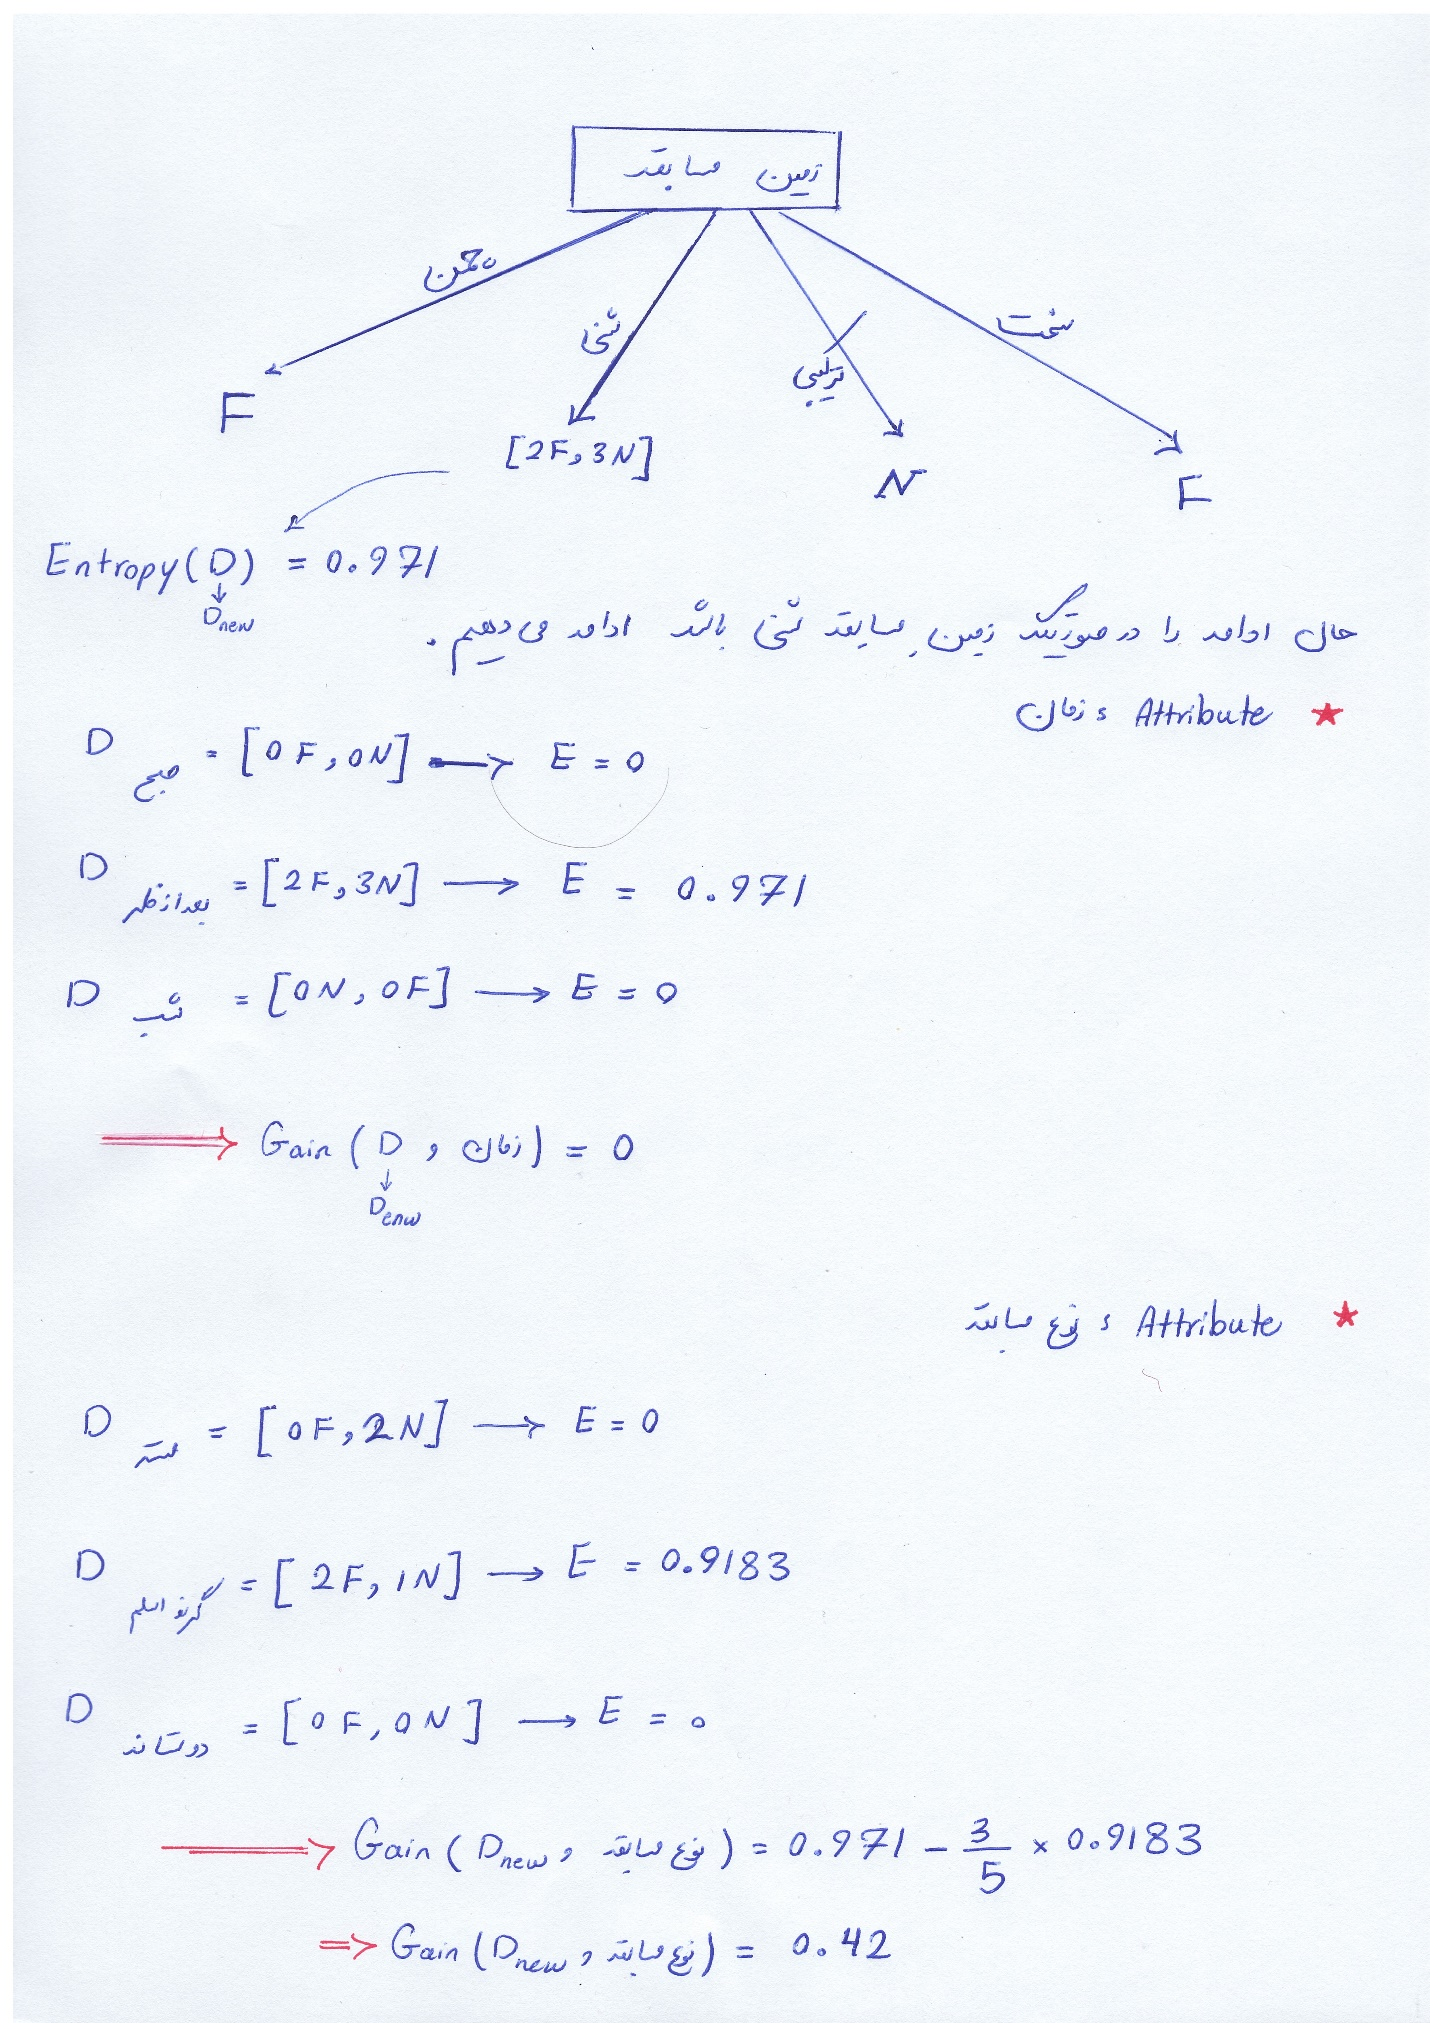 زمین مسابقه
چمن
شنی
ترکیبی
سخت
F
[2F, 3N]
N
F
Entropy(D) = 0.971
Dnew
حال ادامه را در صورتیکه زمین مسابقه شنی باشد ادامه می دهیم.
★ Attribute : زمان
D صبح = [0F, 0N] → E = 0
D بعدازظهر = [2F, 3N] → E = 0.971
D شب = [0N, 0F] → E = 0
⇒ Gain (D , زمان) = 0
Denw
★ Attribute : نوع مسابقه
D = [0F, 2N] → E = 0
D گرند اسلم = [2F, 1N] → E = 0.9183
D دوستانه = [0F, 0N] → E = 0
⇒ Gain (Dnew , نوع مسابقه) = 0.971 - 3/5 × 0.9183
⇒ Gain (Dnew , نوع مسابقه) = 0.42